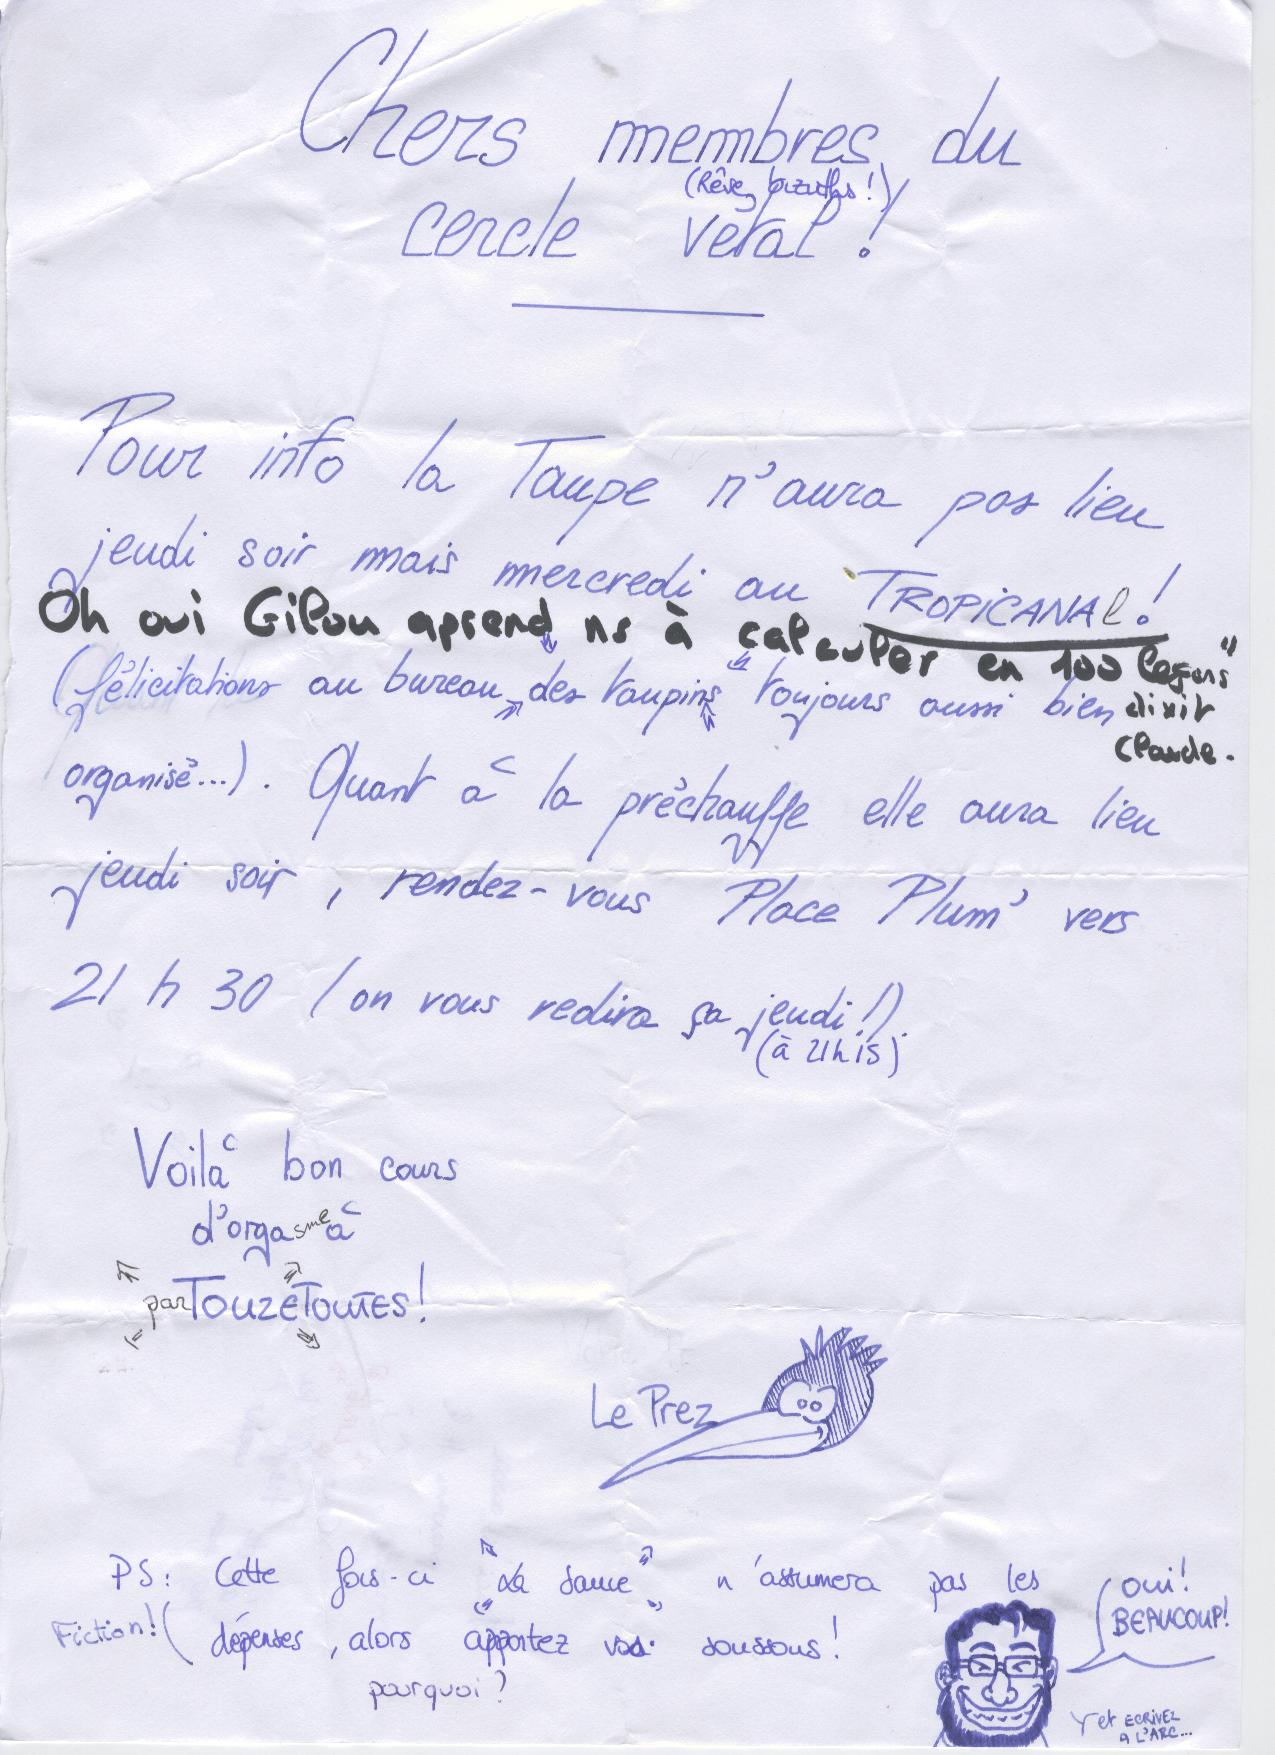 Chers membres du
(Rêvez bizuths !)
cercle véral !
Pour info la Taupe n'aura pas lieu
jeudi soir mais mercredi au TROPICANAL !
Oh oui Gilou aprend ns à calculer en 100 leçons"
(félicitations au bureau des taupins toujours aussi bien dixit
Claude.
organisé...). Quant à la préchauffe elle aura lieu
jeudi soir, rendez-vous Place Plum' vers
21 h 30 (on vous redira ça jeudi !).
(à 21h15)
Voilà bon cours
d'orgasme à
par TouzeTouTES !
Le Prez
PS : Cette fois-ci "La sauce" n'assumera pas les
Fiction ! ( dépenses, alors apportez vos soussous !
pourquoi ?
OUI !
BEAUCOUP !
Y et ECRIVEZ
A L'ARC...